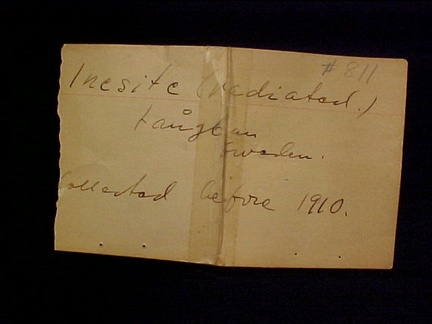 #811
Inesite (radiated.)
Långban
Sweden.
Collected before 1910.